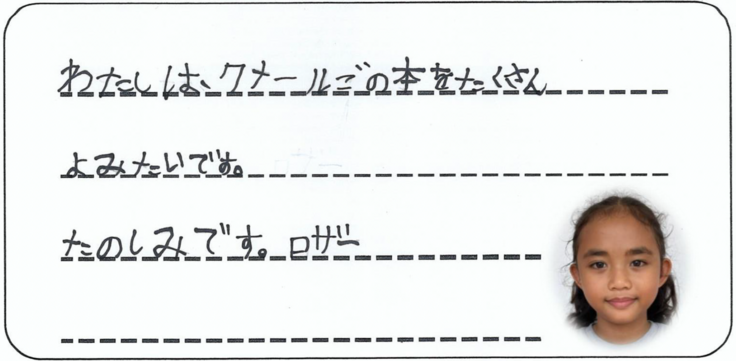 わたしは、クメールごの本をたくさん
よみたいです。
たのしみです。ロザー